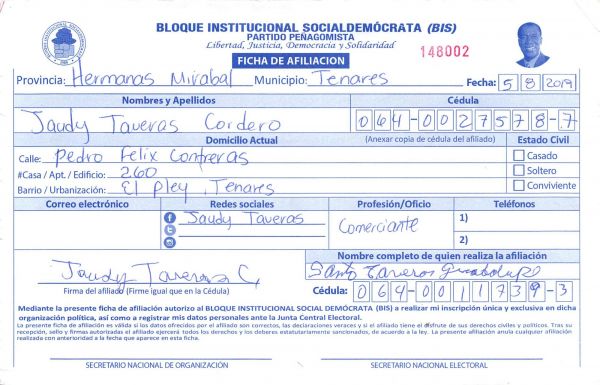 BLOQUE INSTITUCIONAL SOCIALDEMÓCRATA (BIS)
PARTIDO PEÑAGOMISTA
Libertad, Justicia, Democracia y Solidaridad
148002
FICHA DE AFILIACION
Provincia: Hermanas Mirabal Municipio: Tenares Fecha: 5 8 2019
Nombres y Apellidos Cédula
Jaudy Taveras Cordero 064-0027578-7
Domicilio Actual (Anexar copia de cédula del afiliado) Estado Civil
Calle: Pedro Felix Contreras Casado
#Casa / Apt. / Edificio: 260 Soltero
Barrio / Urbanización: El Pley, Tenares Conviviente
Correo electrónico Redes sociales Profesión/Oficio Teléfonos
Jaudy Taveras Comerciante 1)
2)
Nombre completo de quien realiza la afiliación
Jaudy Taveras C, Santo Taveras
Firma del afiliado (Firme igual que en la Cédula) Cédula: 064-0011739-3
Mediante la presente ficha de afiliación autorizo al BLOQUE INSTITUCIONAL SOCIAL DEMÓCRATA (BIS) a realizar mi inscripción única y exclusiva en dicha
organización política, así como a registrar mis datos personales ante la Junta Central Electoral.
La presente ficha de afiliación es válida si los datos ofrecidos por el afiliado son correctos, las declaraciones veraces y si el afiliado tiene el disfrute de sus derechos civiles y políticos. Tras su
recepción, sello y firmas autorizadas el afiliado ejercerá todos los derechos y los deberes estatutariamente sancionados, de acuerdo a la ley. La presente afiliación anula cualquier afiliación
realizada con anterioridad a la fecha que aparece en esta ficha.
SECRETARIO NACIONAL DE ORGANIZACIÓN SECRETARIO NACIONAL ELECTORAL